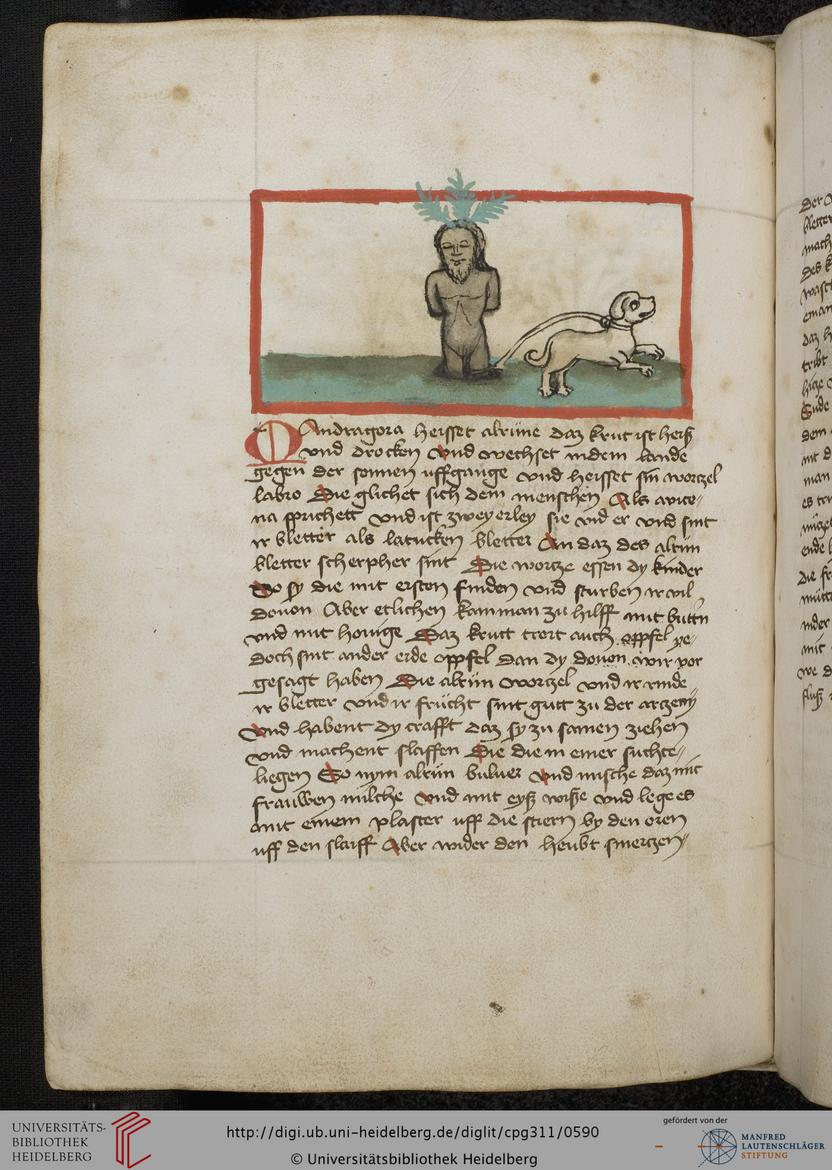 Mandragora heisset alrune daz krut ist heiß
vnd drocken Vnd wechset in dem lande
gegen der sonnen uffgange vnd heisset sin wortzel
labro Die glichet sich dem menschen Als auice„
na sprichett vnd ist zweyerley sie vnd er vnd sint
ir bletter als latucken bletter An daz des alrun
bletter scherpher sint Die wortze essen dy kinder
So sy die mit ersten finden vnd sturben ir vil
douon Aber etlichen kam man zu hilff mit buttn
vnd mit honige Daz krutt trert auch oppfel ye„
doch sint ander erde oppfel dan dy douon wir vor
gesagt haben Die alrun wortzel vnd ir rinde
ir bletter vnd ir frücht sint gutt zu der artzeny
Vnd habent dy crafft daz sy zu samen ziehen
vnd machent slaffen Die die in einer suchte„
liegen So nym alrun buluer Vnd mische daz mit
frauwen milche vnd mit eyß wiße vnd lege es
mit einem plaster uff die stiern by den oren
uff den slaiff Aber wider den heubt smertzen„
UNIVERSITÄTS-
BIBLIOTHEK
HEIDELBERG
http://digi.ub.uni-heidelberg.de/diglit/cpg311/0590
© Universitätsbibliothek Heidelberg
gefördert von der
MANFRED
LAUTENSCHLÄGER
STIFTUNG